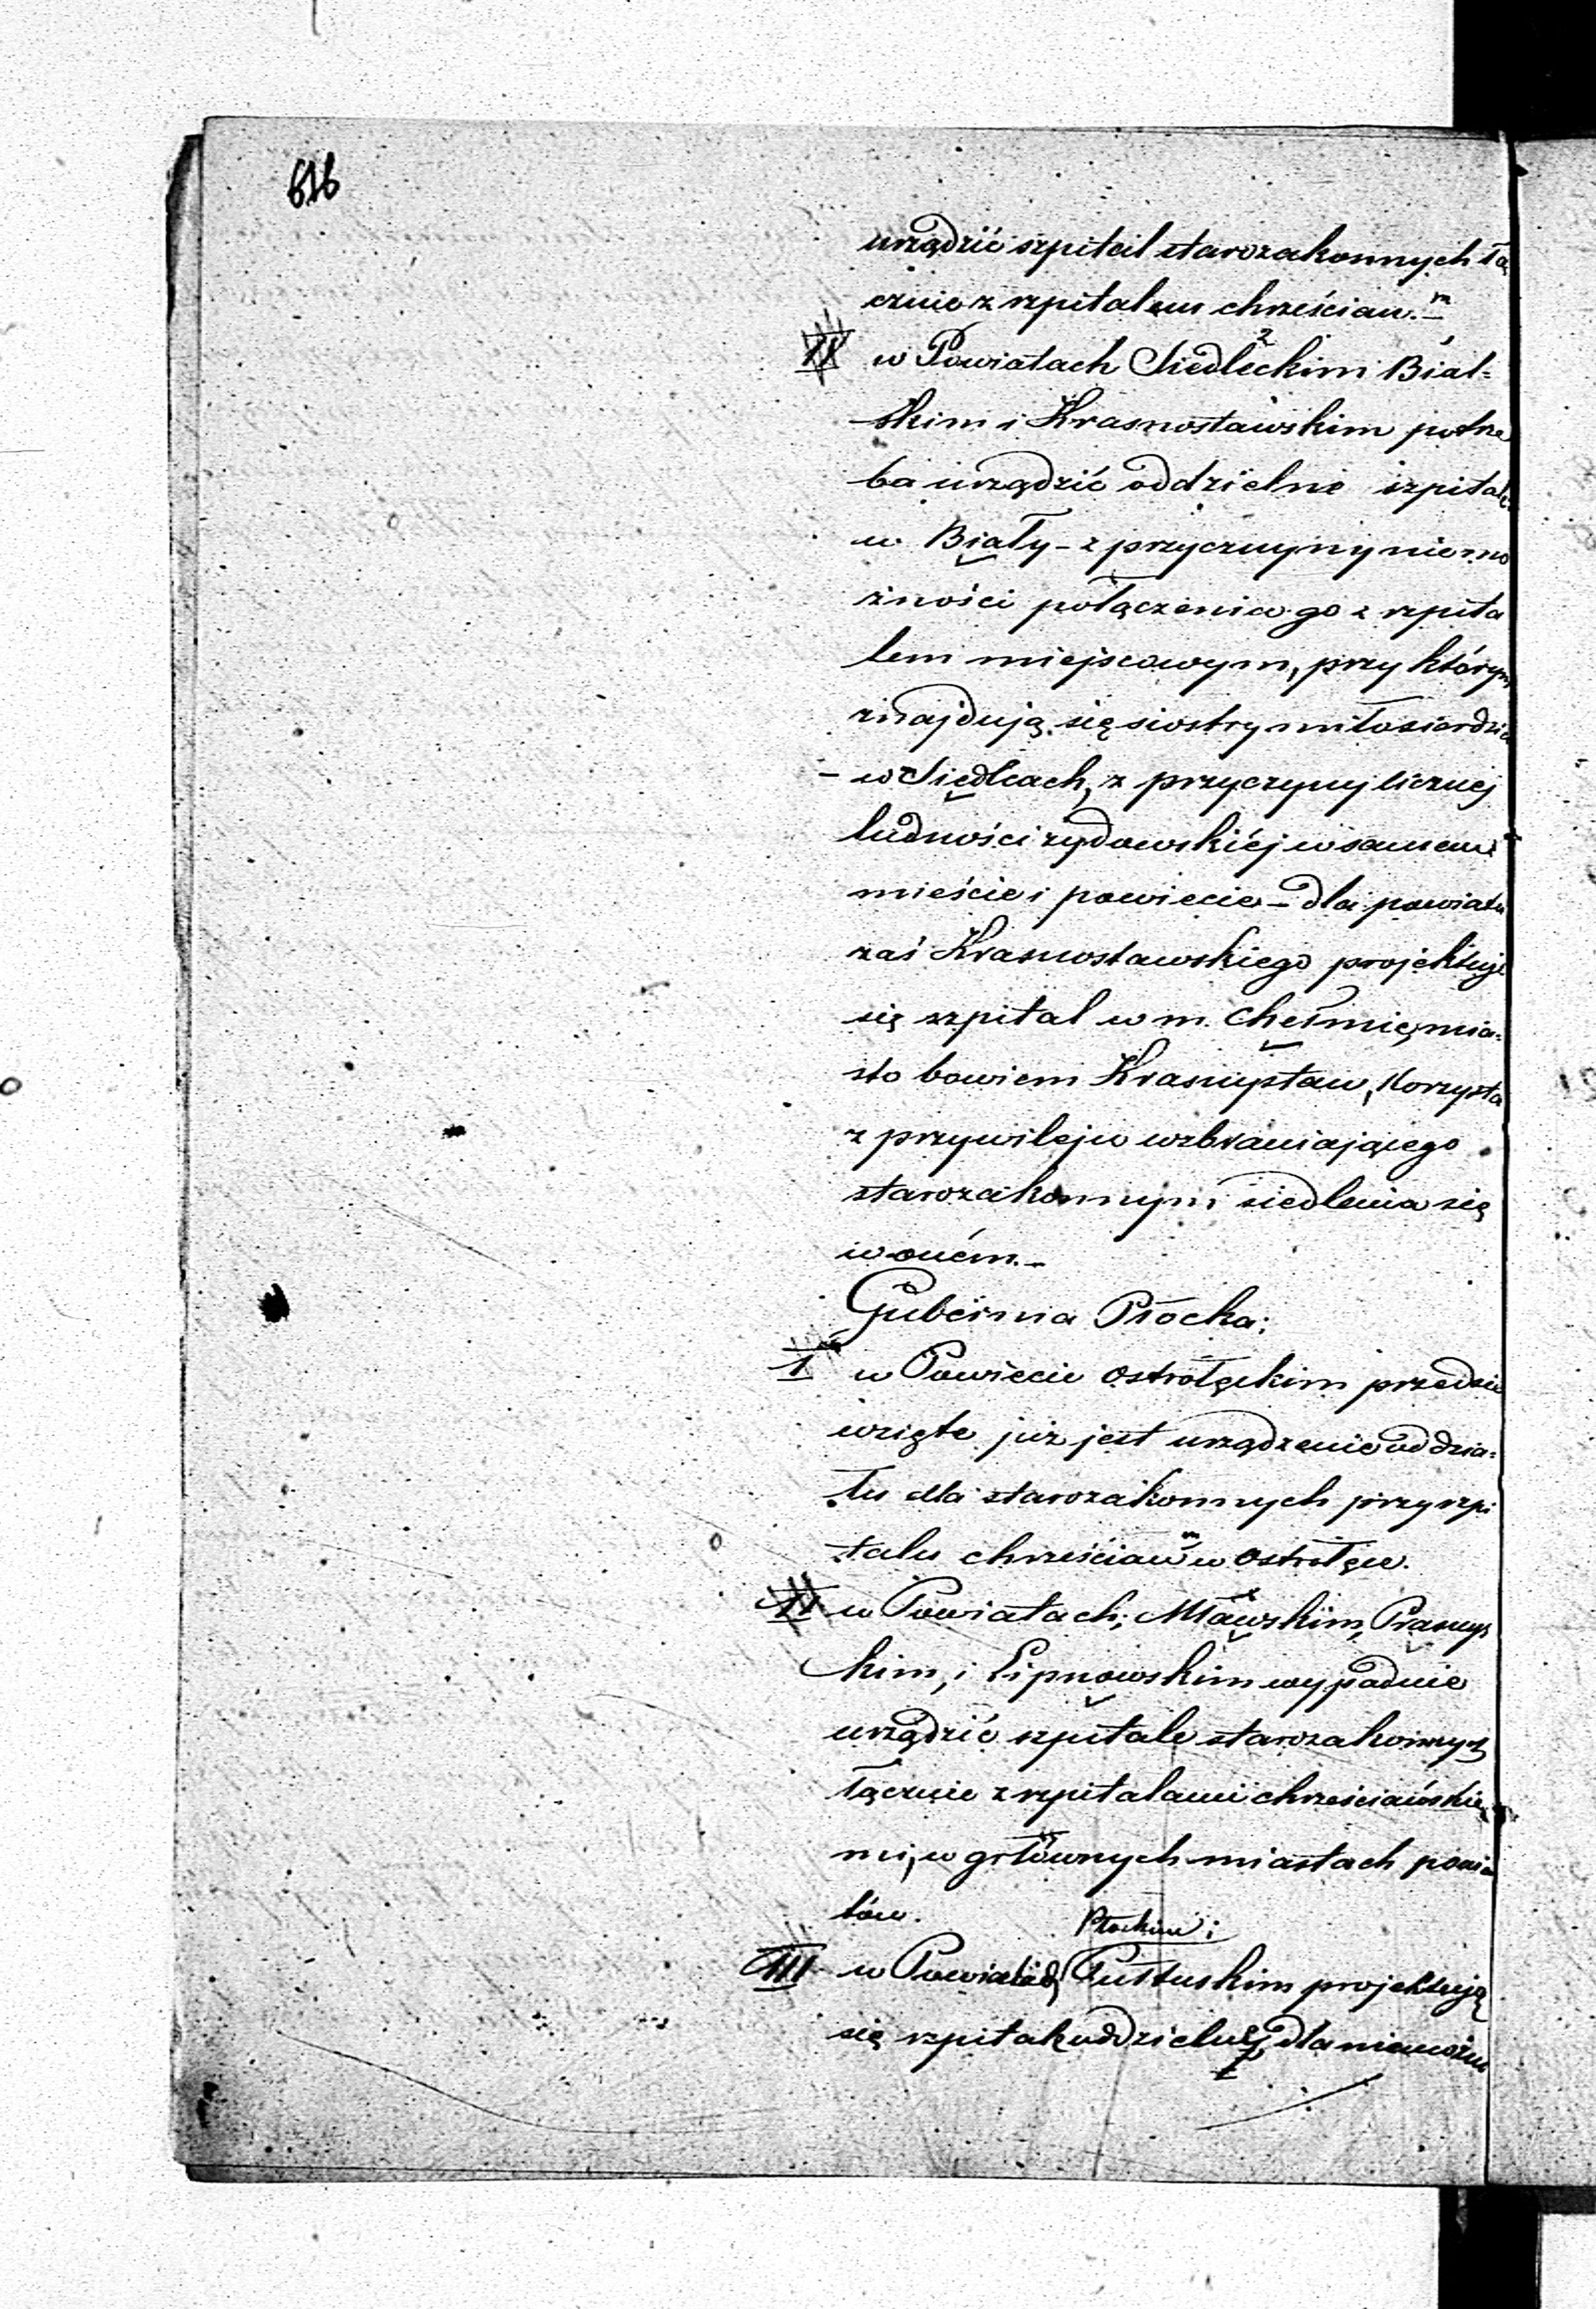 616
urządzić szpital starozakonnych łą
cznie z szpitalem chrześcian.m
II w Powiatach Siedleckim Bial-
skim i Krasnostawskim potrze
ba urządzić oddzielne szpitale
w Biały - z przyczyny niemo
żności połączenia go z szpita
lem miejscowym, przy którym
znajdują się siostry miłosierdzia
- w Siedlcach, z przyczyny licznej
ludności żydowskiéj w samem
mieście i powiecie - dla powiatu
zaś Krasnostawskiego projektuje
się szpital w m. Chełmie, mia-
sto bowiem Krasnystaw, korzysta
z przywileju wzbraniającego
starozakonnym siedlenia się
w oném. -
Gubernia Płocka;
I w Powiecie Ostrołęckim przedsię
wzięte już jest urządzenie oddzia-
łu dla starozakonnych przy szpi
talu chrześciańm w Ostrołęce.
II w Powiatach; Mławskim, Prasnys
kim, i Lipnowskim wypadnie
urządzić szpitale starozakonnych
łącznie z szpitalami chrześciańskie
mi, w głównych miastach powia
tów.
Płockim i
III w Powiatach Pułtuskim projektują
się szpitale oddzielne, dla niemożno